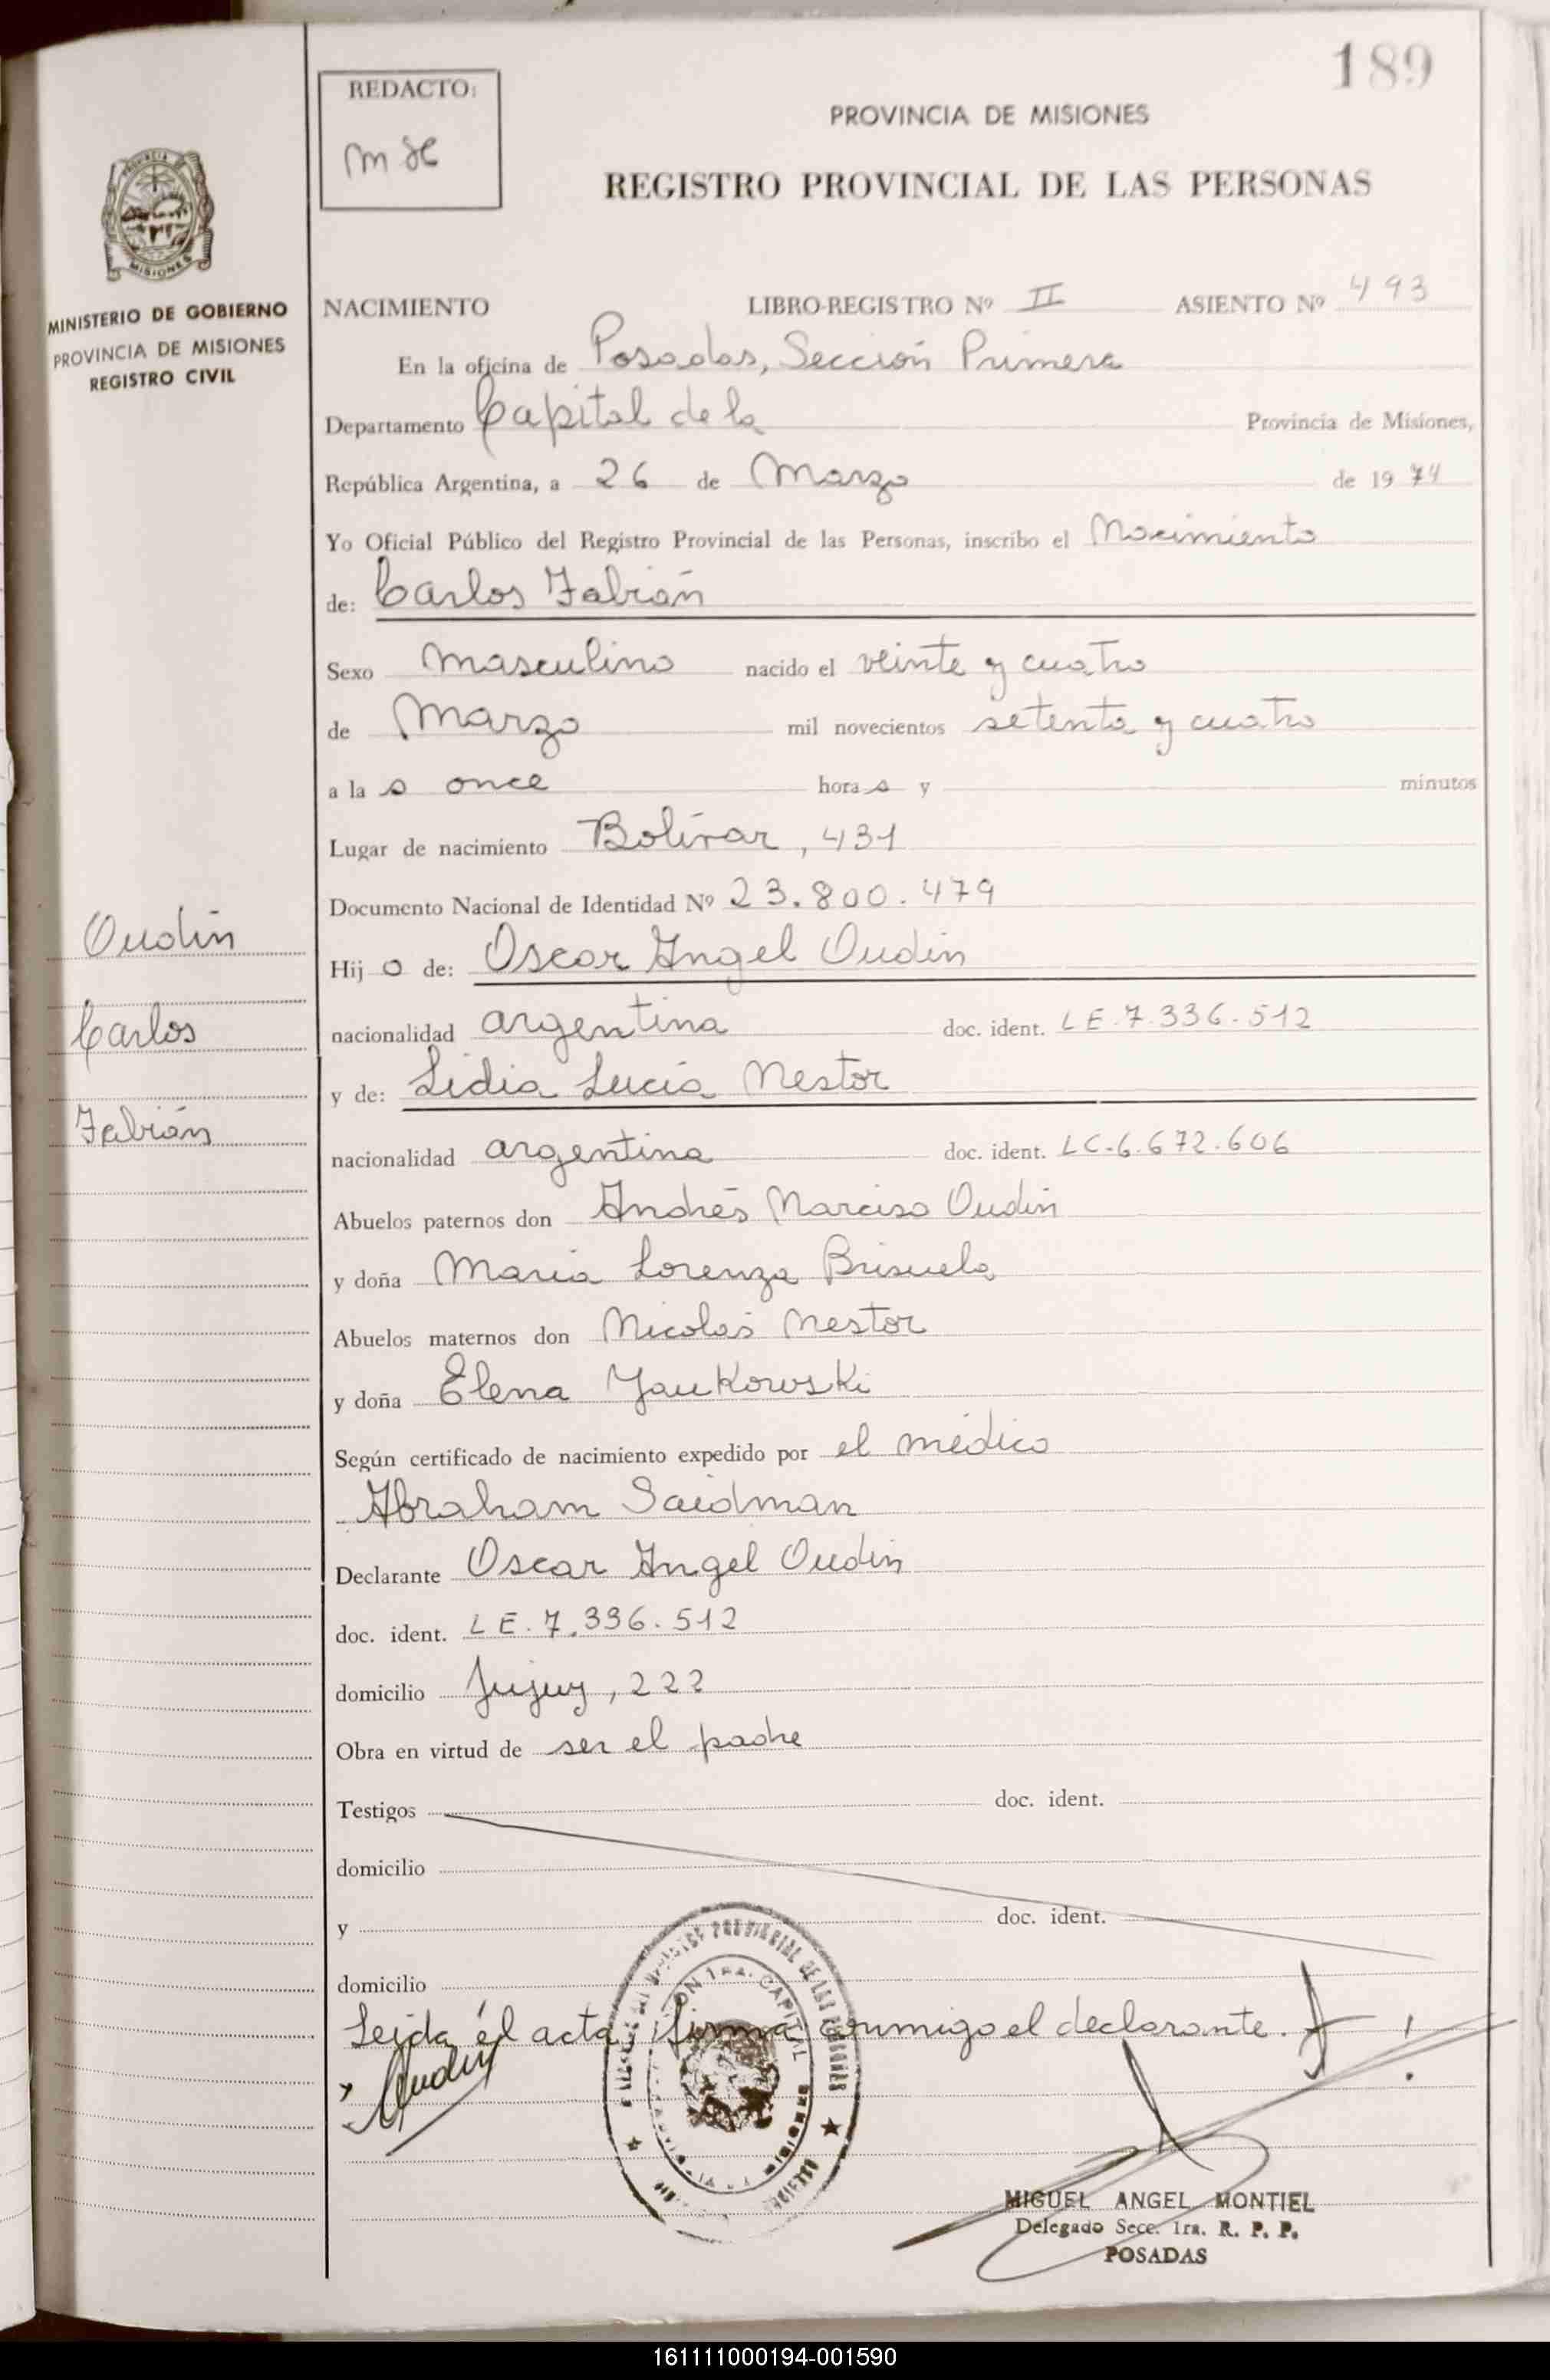 189
REDACTO:
MINISTERIO DE GOBIERNO
PROVINCIA DE MISIONES
REGISTRO CIVIL
PROVINCIA DE MISIONES
REGISTRO PROVINCIAL DE LAS PERSONAS
NACIMIENTO LIBRO-REGISTRO Nº II ASIENTO Nº 493
En la oficina de Posadas, Sección Primera
Departamento Capital de la Provincia de Misiones,
República Argentina, a 26 de Marzo de 1974
Yo Oficial Público del Registro Provincial de las Personas, inscribo el Nacimiento
de: Carlos Fabián
Sexo masculino nacido el veinte y cuatro
de Marzo mil novecientos setenta y cuatro
a la s once hora s y minutos
Lugar de nacimiento Bolívar, 431
Documento Nacional de Identidad Nº 23.800.479
Hij o de: Oscar Angel Oudin
nacionalidad argentina doc. ident. LE.7.336.512
y de: Lidia Lucía Nestor
nacionalidad argentina doc. ident. LC-6.672.606
Abuelos paternos don Andrés Narciso Oudin
y doña María Lorenza Brisuela
Abuelos maternos don Nicolás Nestor
y doña Elena Yaukowski
Según certificado de nacimiento expedido por el médico
Abraham Saidman
Declarante Oscar Angel Oudin
doc. ident. LE.7.336.512
domicilio Jujuy, 222
Obra en virtud de ser el padre
Testigos doc. ident.
domicilio
y doc. ident.
domicilio
Leída el acta, firma conmigo el declarante.
Oudin
Carlos
Fabián
Oudin
MIGUEL ANGEL MONTIEL
Delegado Secc. 1ra. R. P. P.
POSADAS
161111000194-001590